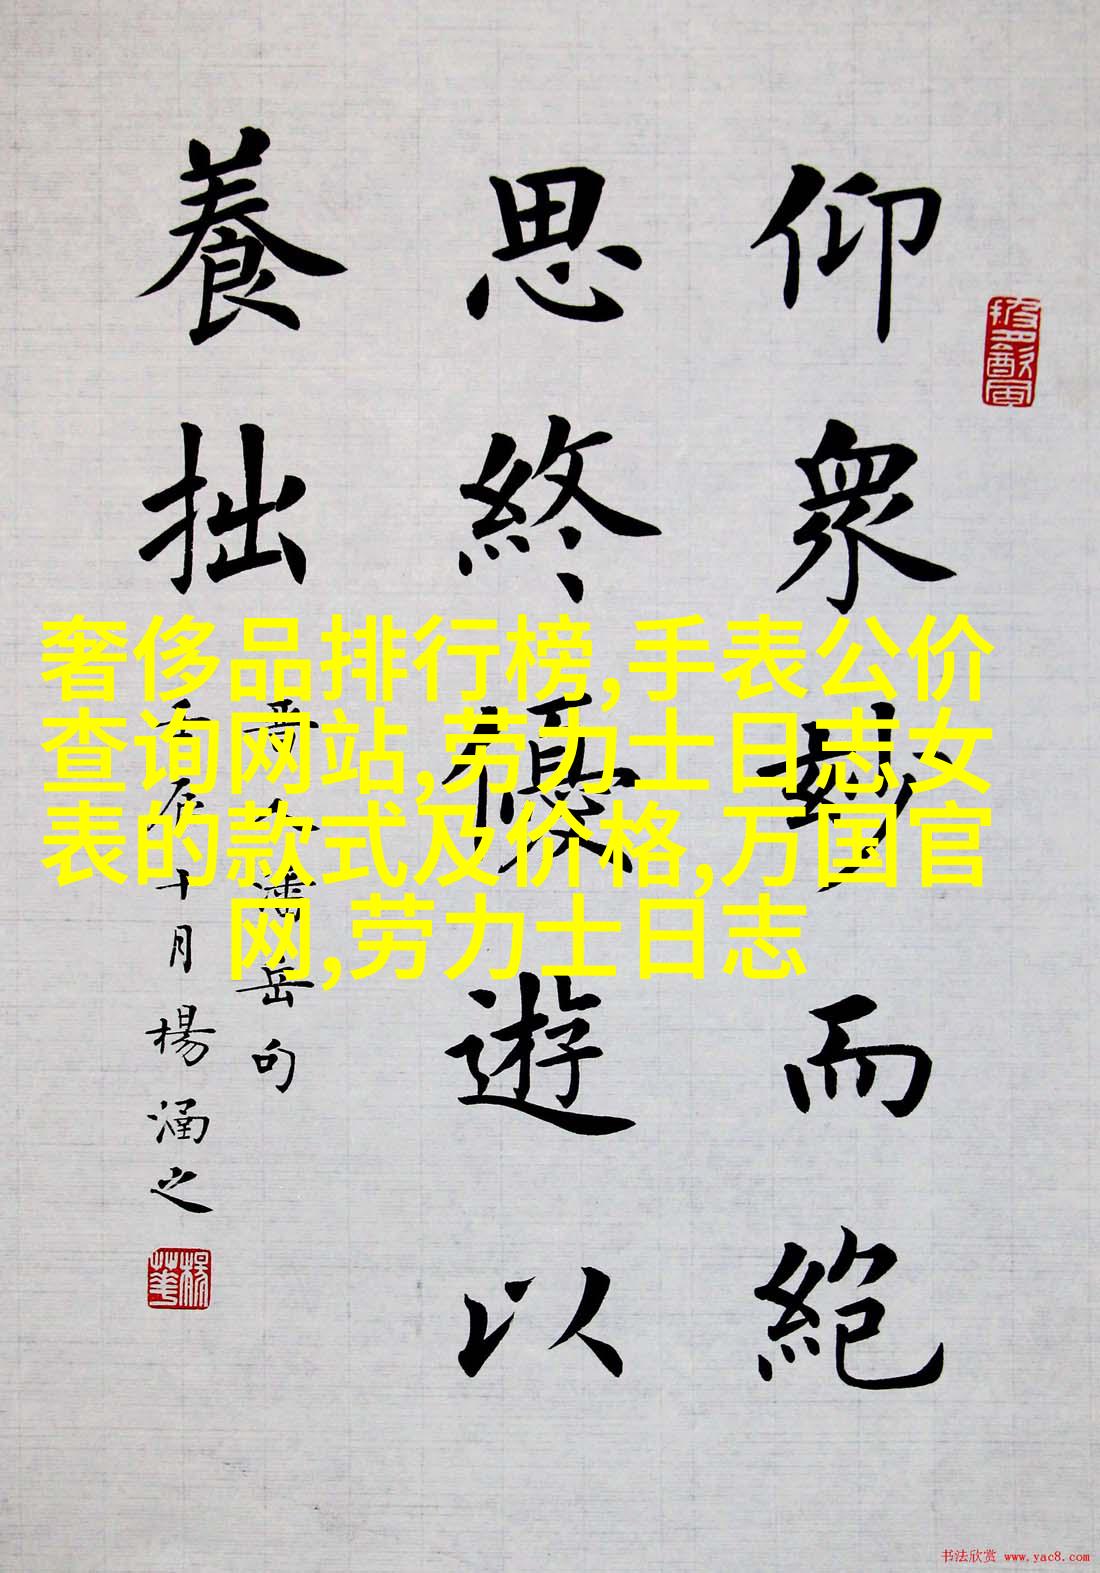 仰眾妙而絶
思終優遊以
養拙
晉 潘岳句
壬辰十月楊涵之
奢侈品排行榜,手表公价
查询网站,劳力士日志女
表的款式及价格,万国官
网,劳力士日志
书法欣赏 www.yac8.com